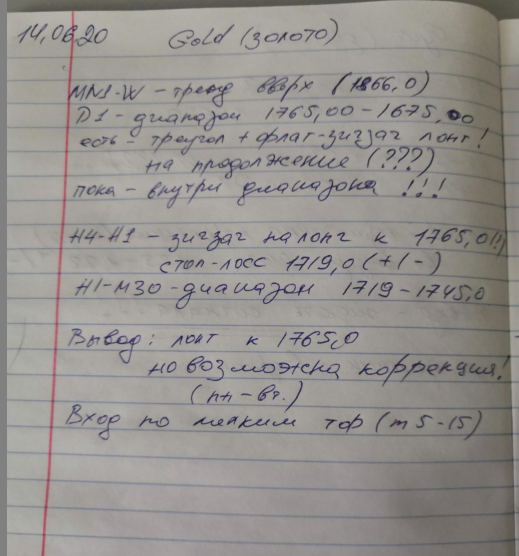 14.06.20 Gold (золото)
MN1-W - тренд вверх (1866,0)
D1 - диапазон 1765,00-1675,00
есть - треугол + флаг-зигзаг лонг!
на продолжение (???)
пока - внутри диапазона !!!
H4-H1 - зигзаг на лонг к 1765,0!!)
стоп-лосс 1719,0 (+/-)
H1-M30 - диапазон 1719-1745,0
Вывод: лонг к 1765,0
но возможна коррекция!
(пн-вт.)
Вход по мелким тф (m5-15)